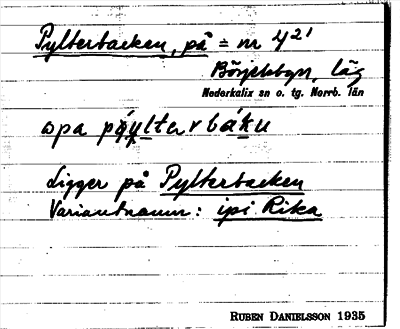 Pylterbacken, på = nr 4²¹
Börjelsbyn, läg
Nederkalix sn o. tg. Norrb. län
opa pöyltervbáku
Ligger på Pylterbacken
Variantnamn: ipi Rika
RUBEN DANIELSSON 1935